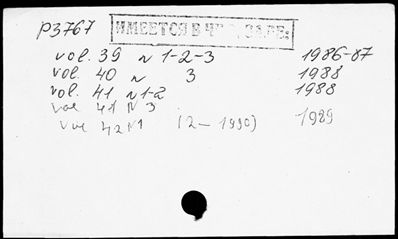 P3767 ИМЕЕТСЯ В ЧИТ. ЗАЛЕ:
vol. 39 N 1-2-3 1986-87
vol. 40 N 3 1988
vol. 41 N 1-2 1988
vol 41 N 3 1989
vol 42 N1 (2-1990)